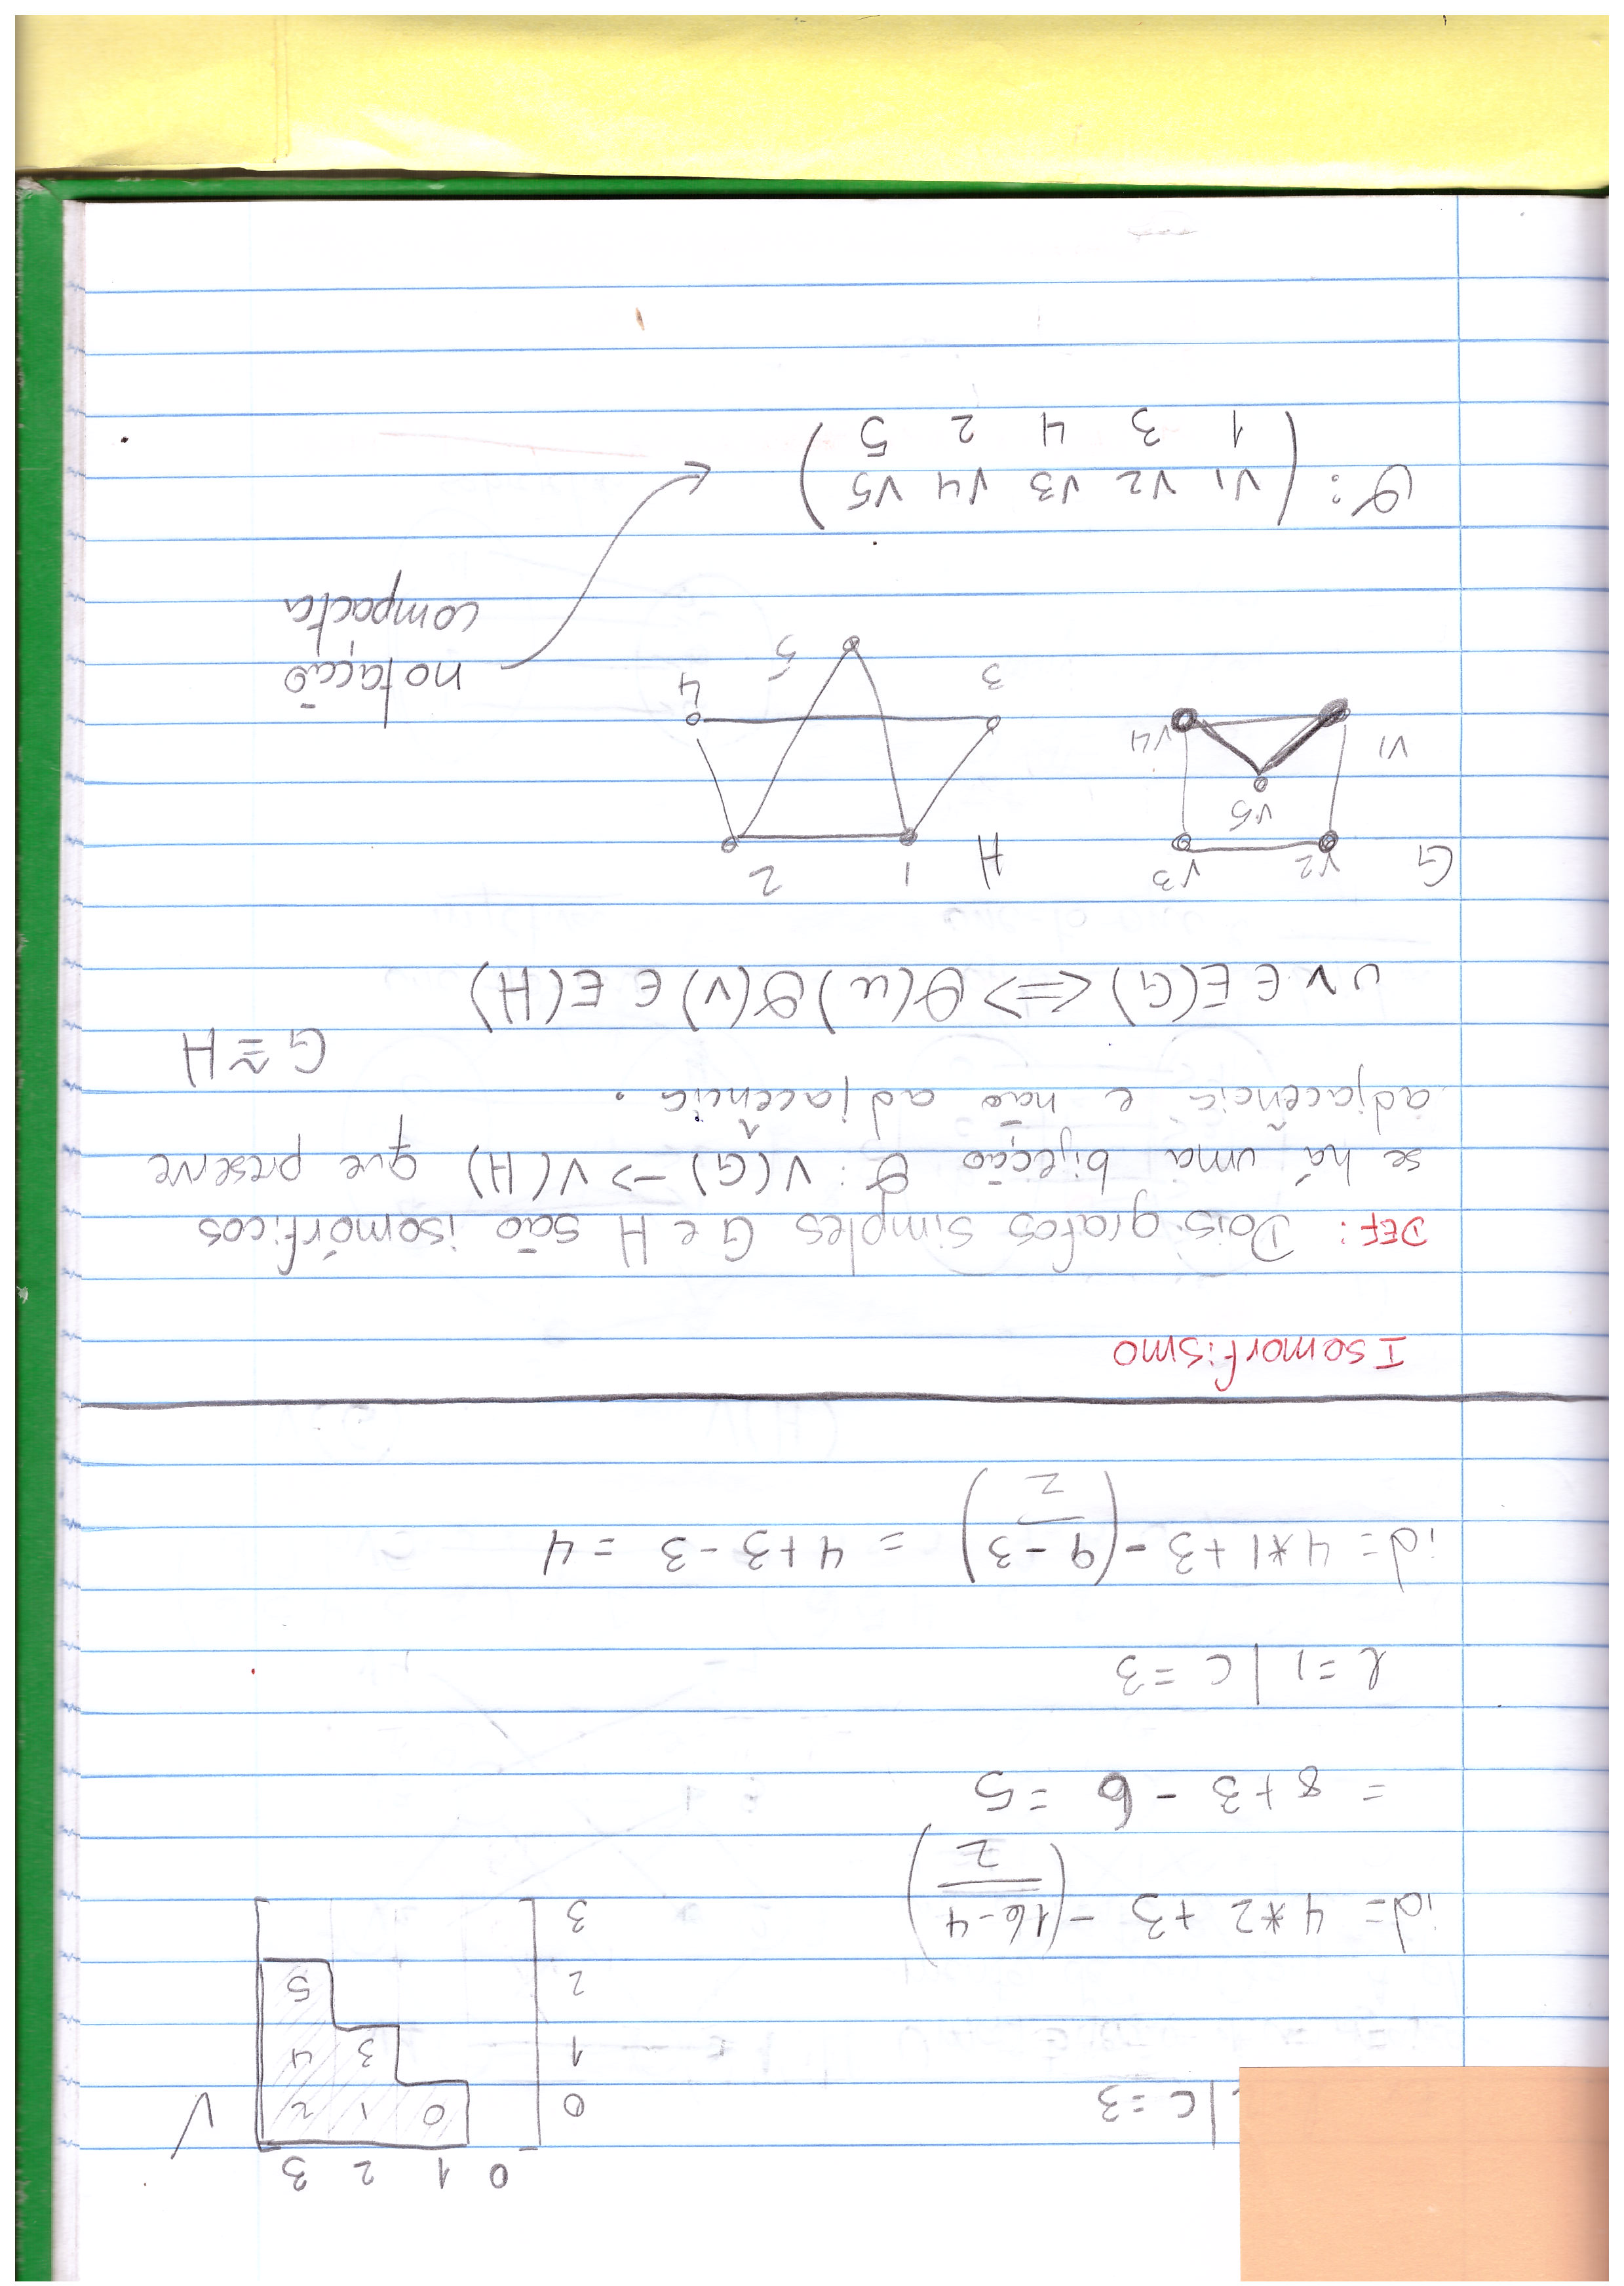 0 1 2 3
| c = 3
0 0 1 2 √
1 3 4
2 5
3
id = 4 * 2 + 3 - (16 - 4 / 2)
= 8 + 3 - 6 = 5
l = 1 | c = 3
id = 4 * 1 + 3 - (9 - 3 / 2) = 4 + 3 - 3 = 4
Isomorfismo
DEF: Dois grafos simples G e H são isomórficos
se há uma bijeção θ : V(G) -> V(H) que preserve
adjacência e não adjacência.
G ≅ H
uv ∈ E(G) <=> θ(u)θ(v) ∈ E(H)
G v2 v3 H 1 2
v5
v1 v4
3 5 4
notação
compácta
θ : ( v1 v2 v3 v4 v5 )
1 3 4 2 5